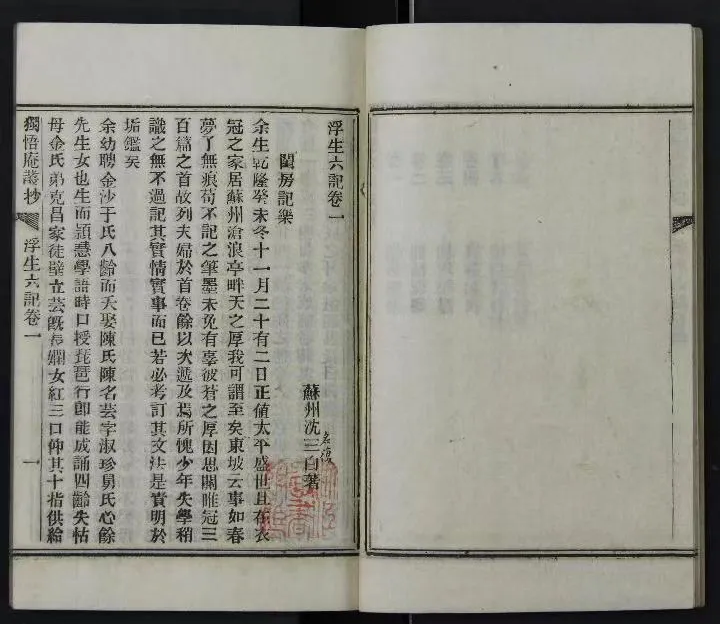 浮生六記卷一
閨房記樂
蘇州沈三白著
名復
余生乾隆癸未冬十一月二十有二日正値太平盛世且在衣
冠之家居蘇州滄浪亭畔天之厚我可謂至矣東坡云事如春
夢了無痕苟不記之筆墨未免有辜彼蒼之厚因思關雎冠三
百篇之首故列夫婦於首卷餘以次遞及焉所愧少年失學稍
識之無不過記其實情實事而已若必考訂其文法是責明於
垢鑑矣
余幼聘金沙于氏八齡而夭娶陳氏陳名芸字淑珍舅氏心餘
先生女也生而穎慧學語時口授琵琶行卽能成誦四齡失怙
母金氏弟克昌家徒壁立芸旣長嫻女紅三口仰其十指供給
獨悟庵叢抄
浮生六記卷一
一